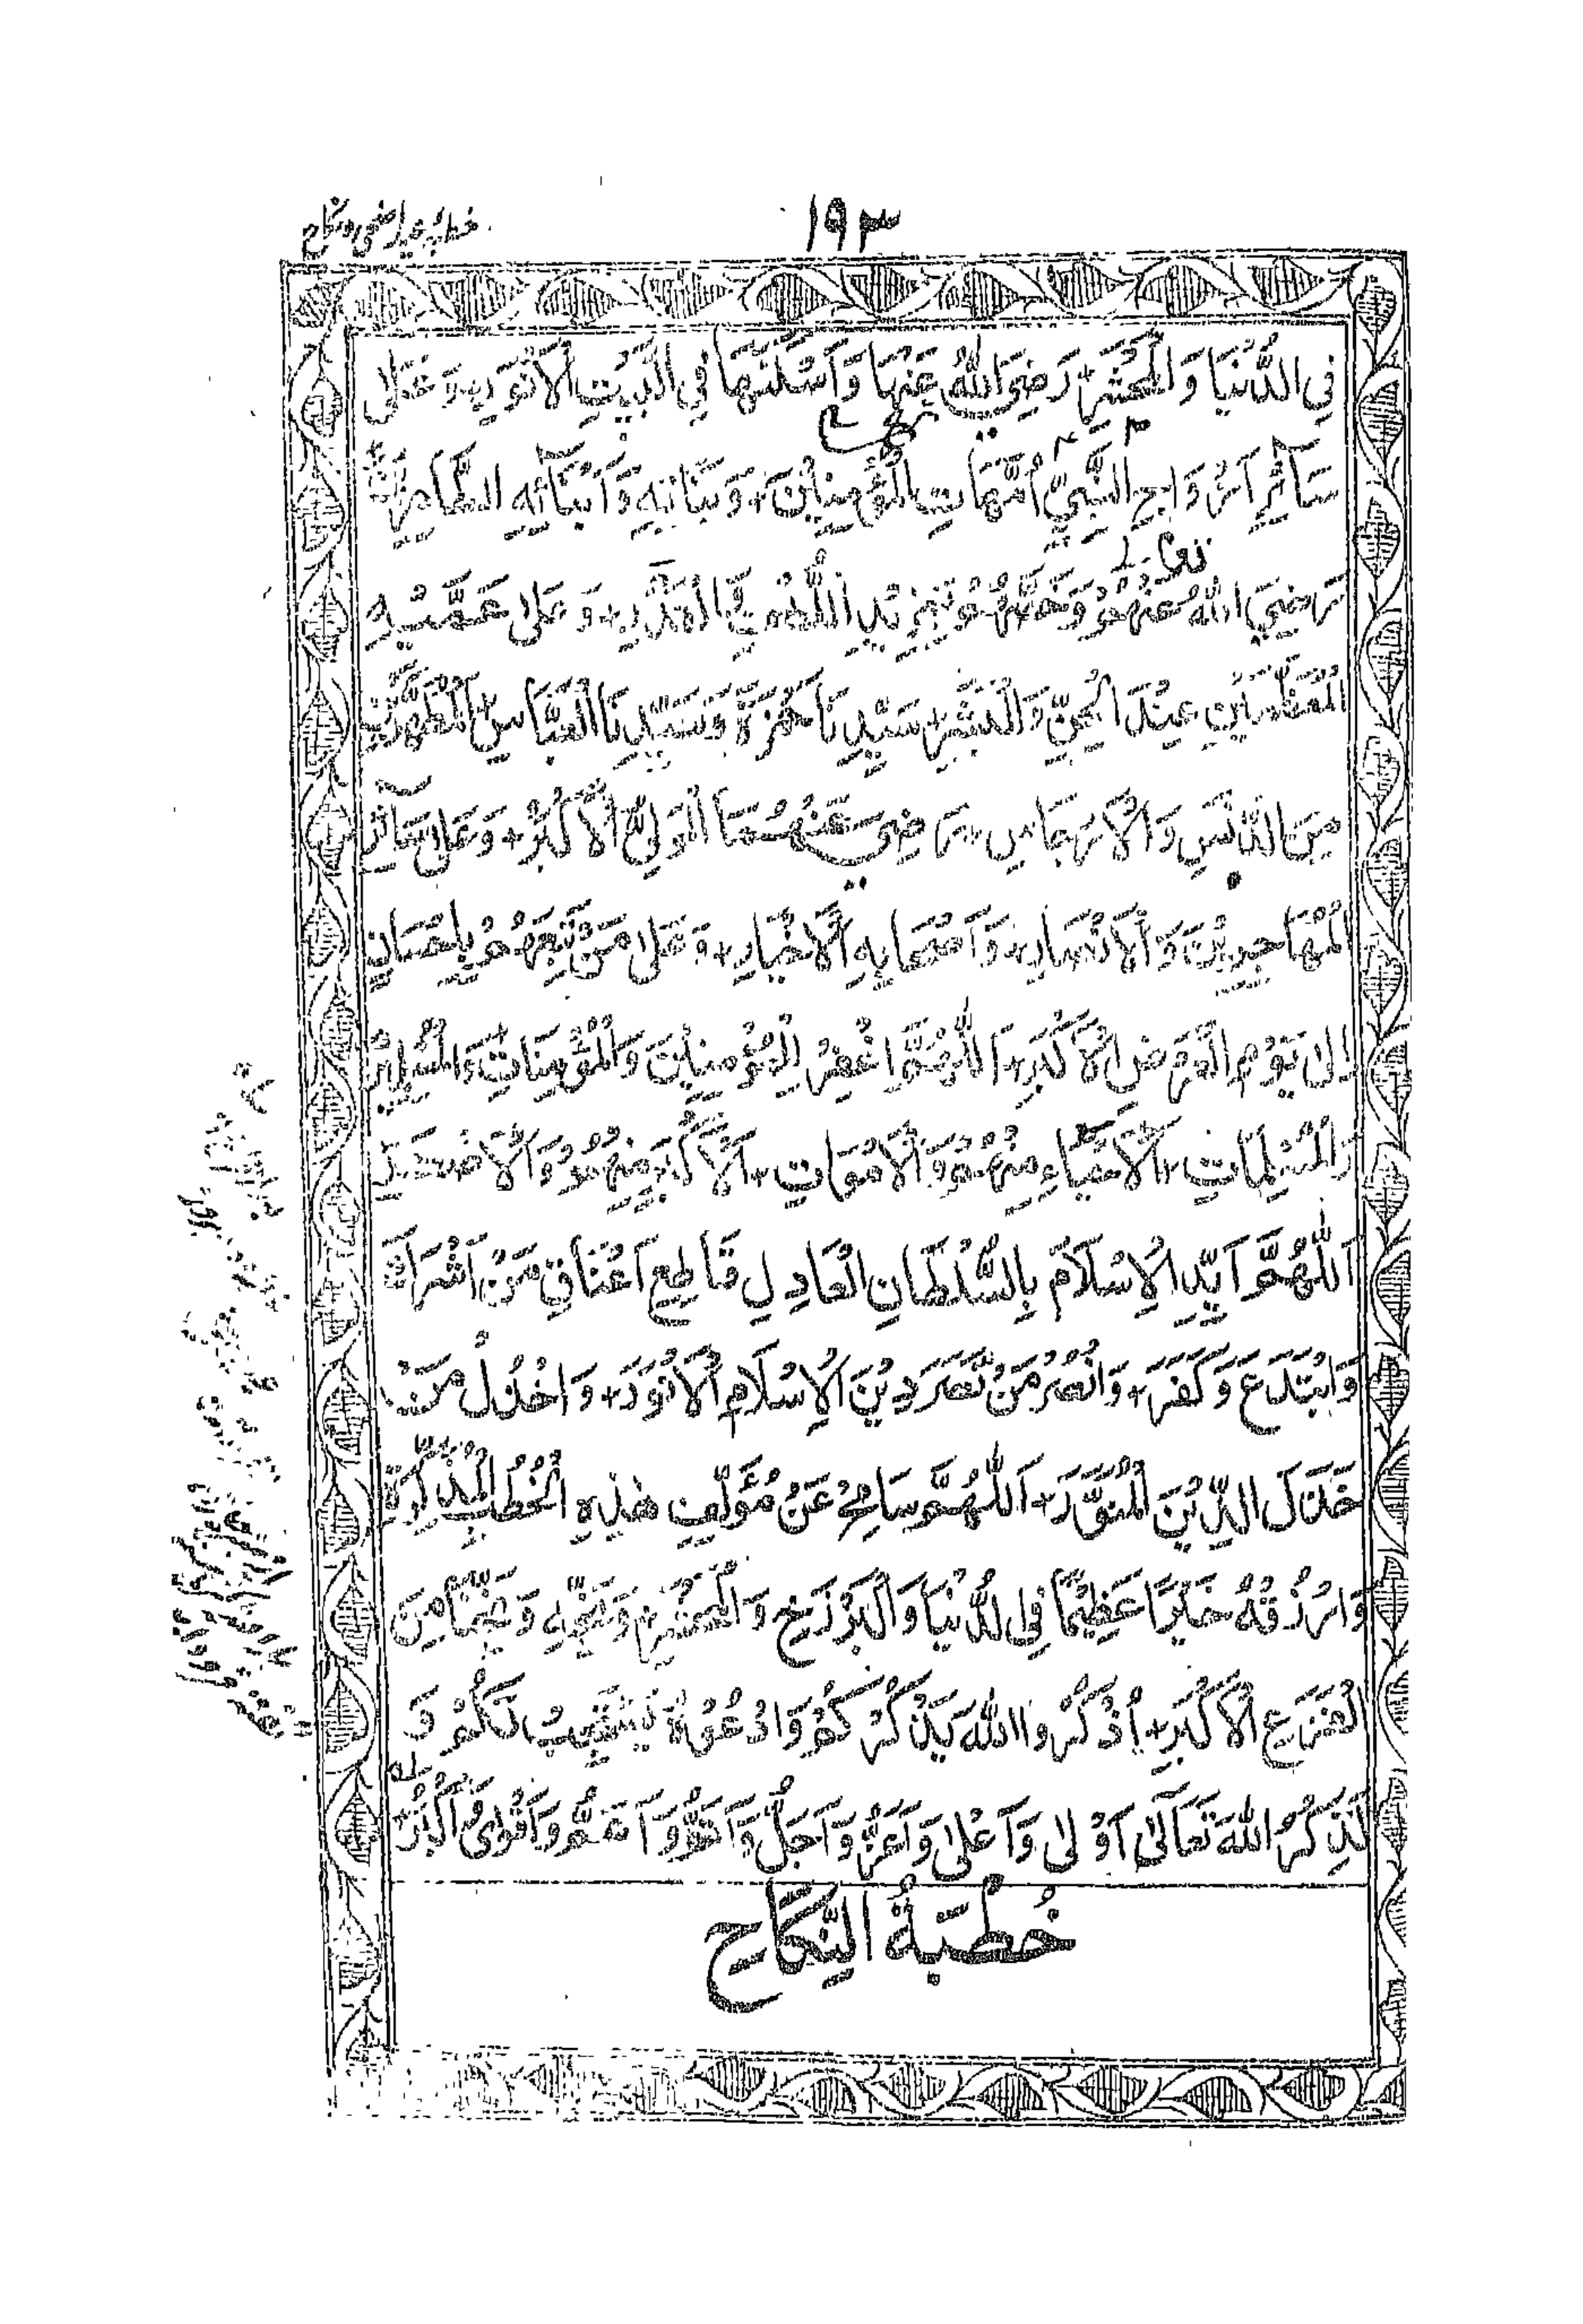 ۱۹۳
خطبہ عید اضحی و نکاح
فِي الدُّنْيَا وَالْمَحْشَرِ + رَضِيَ اللّٰهُ عَنْهَا وَاَسْكَنَهَا فِي الْبَيْتِ الْاَنْوَرِ + وَعَلٰى
سَآئِرِ اَزْوَاجِ النَّبِيِّ اُمَّهَاتِ الْمُؤْمِنِيْنَ + وَبَنَاتِهٖ وَاَبْنَآئِهِ الطَّاهِرِيْنَ
رَضِيَ اللّٰهُ عَنْهُمْ وَخَصَّهُمْ بِمَزِيْدِ اللُّطْفِ فِي الْقَدْرِ + وَعَلٰى عَمَّيْهِ
الْمُعَظَّمَيْنِ عِنْدَ الْجِنِّ وَالْبَشَرِ + سَيِّدِنَا حَمْزَةَ وَسَيِّدِنَا الْعَبَّاسِ الْمُطَهَّرَيْنِ
مِنَ الدَّنَسِ وَالْاَرْجَاسِ + رَضِيَ عَنْهُمَا الْمَوْلَى الْاَكْبَرُ + وَعَلٰى سَآئِرِ
الْمُهَاجِرِيْنَ وَالْاَنْصَارِ + وَاَصْحَابِهِ الْاَخْيَارِ + وَعَلٰى مَنْ تَبِعَهُمْ بِاِحْسَانٍ
اِلٰى يَوْمِ الْعَرْضِ الْاَكْبَرِ + اَللّٰهُمَّ اغْفِرْ لِلْمُؤْمِنِيْنَ وَالْمُؤْمِنَاتِ + وَالْمُسْلِمِيْنَ
وَالْمُسْلِمَاتِ + الْاَحْيَآءِ مِنْهُمْ وَالْاَمْوَاتِ + الْاَكْبَرِ مِنْهُمْ وَالْاَصْغَرِ
اَللّٰهُمَّ اَيِّدِ الْاِسْلَامَ بِالسُّلْطَانِ الْعَادِلِ قَاطِعِ اَعْنَاقِ مَنْ اَشْرَكَ
وَابْتَدَعَ وَكَفَرَ + وَانْصُرْ مَنْ نَّصَرَ دِيْنَ الْاِسْلَامِ الْاَنْوَرِ + وَاخْذُلْ مَنْ
خَذَلَ الدِّيْنَ الْمُنَوَّرَ + اَللّٰهُمَّ سَامِحْ عَنْ مُؤَلِّفِ هٰذِهِ الْخُطَبِ الْمُذَكِّرَةِ
وَارْزُقْهُ خَيْرًا عَظِيْمًا فِي الدُّنْيَا وَالْبَرْزَخِ وَالْمَحْشَرِ + وَنَجِّهٖ وَنَجِّنَا مِنَ
الْفَزَعِ الْاَكْبَرِ + اُذْكُرُوا اللّٰهَ يَذْكُرْكُمْ وَادْعُوْهُ يَسْتَجِبْ لَكُمْ وَ
لَذِكْرُ اللّٰهِ تَعَالٰى اَوْلٰى وَاَعْلٰى وَاَعَزُّ وَاَجَلُّ وَاَهَمُّ وَاَتَمُّ وَاَقْوٰى وَاَكْبَرُ
خُطْبَةُ النِّكَاحِ